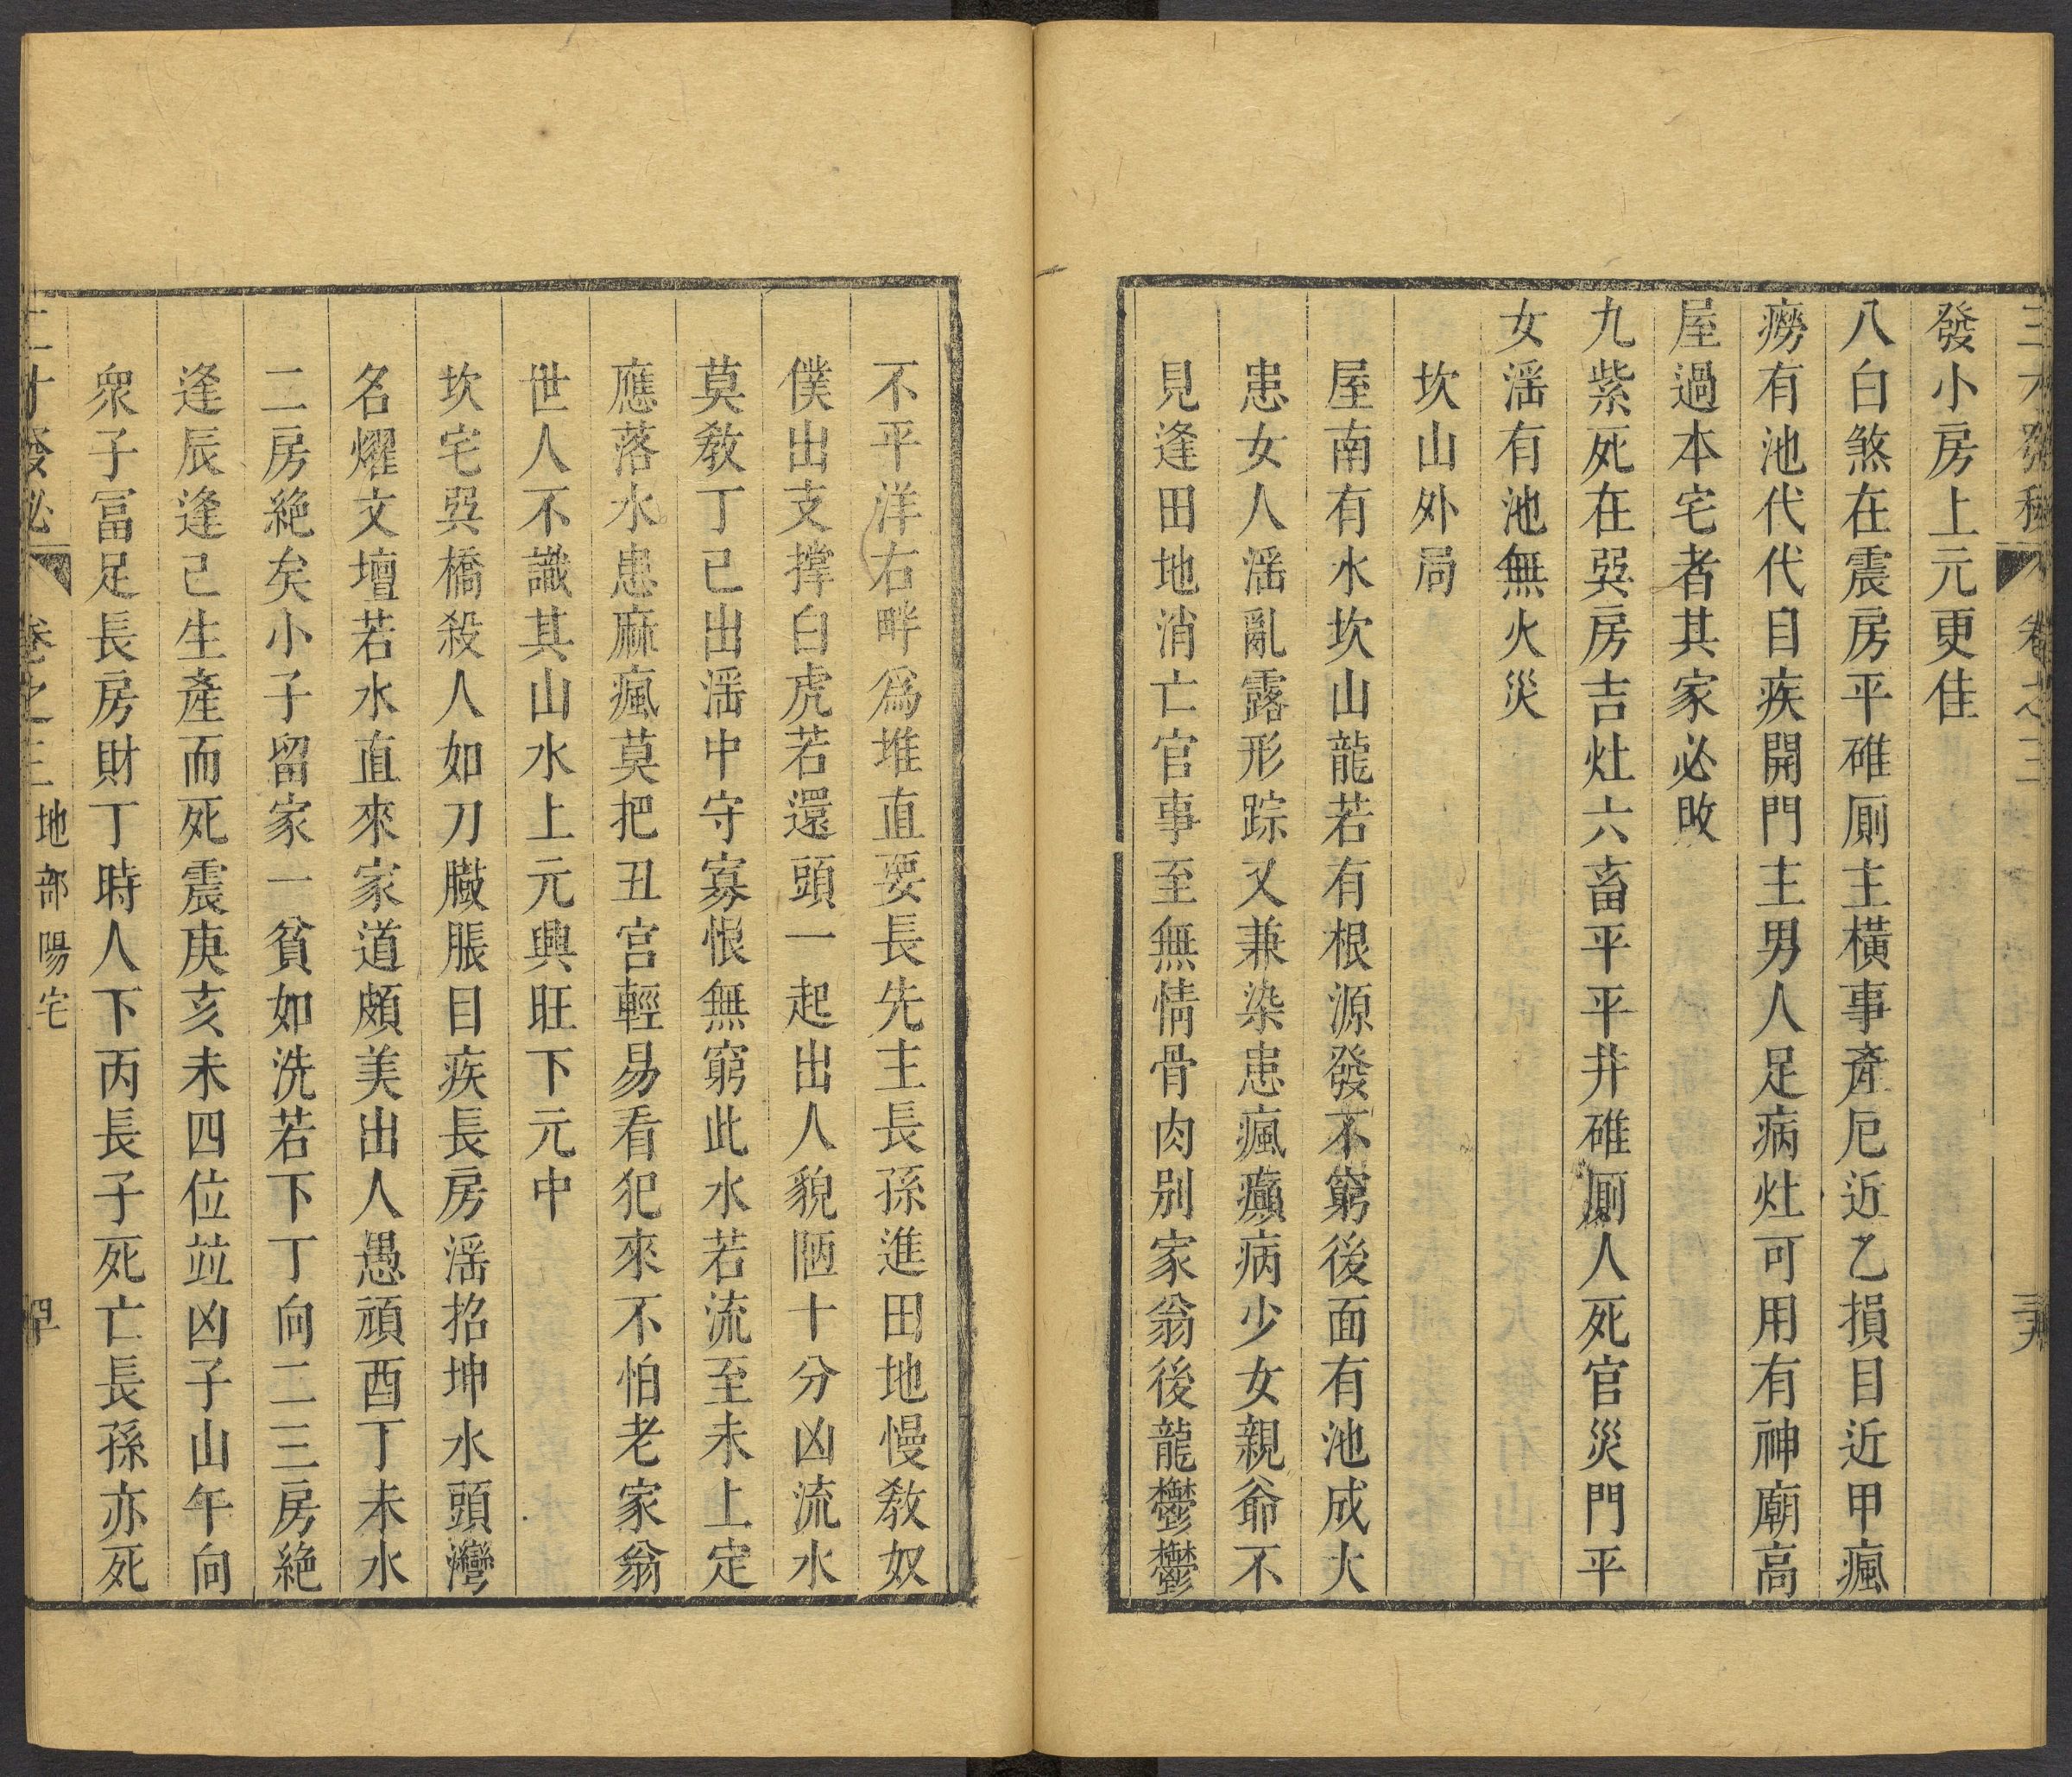 三才發秘 卷之三 三九
發小房上元更佳
八白煞在震房平碓厠主橫事產厄近乙損目近甲瘋
癆有池代代目疾開門主男人足病灶可用有神廟高
屋過本宅者其家必敗
九紫死在巽房吉灶六畜平平井碓厠人死官災門平
女滛有池無火災
坎山外局
屋南有水坎山龍若有根源發不窮後面有池成大
患女人滛亂露形踪又兼染患瘋癲病少女親爺不
見逢田地消亡官事至無情骨肉別家翁後龍鬱鬱
不平洋右畔爲堆直要長先主長孫進田地慢教奴
僕出支撐白虎若還頭一起出人貌陋十分凶流水
莫教丁巳出滛中守寡恨無窮此水若流至未上定
應落水患麻瘋莫把丑宫輕易看犯來不怕老家翁
世人不識其山水上元興旺下元中
坎宅巽橋殺人如刀臌脹目疾長房滛招坤水頭灣
名燿文壇若水直來家道頗美出人愚頑酉丁未水
二房絶矣小子留家一貧如洗若下丁向二三房絶
逢辰逢巳生產而死震庚亥未四位竝凶子山午向
衆子冨足長房財丁時人下丙長子死亡長孫亦死
三才發秘 卷之三 地部陽宅 四十